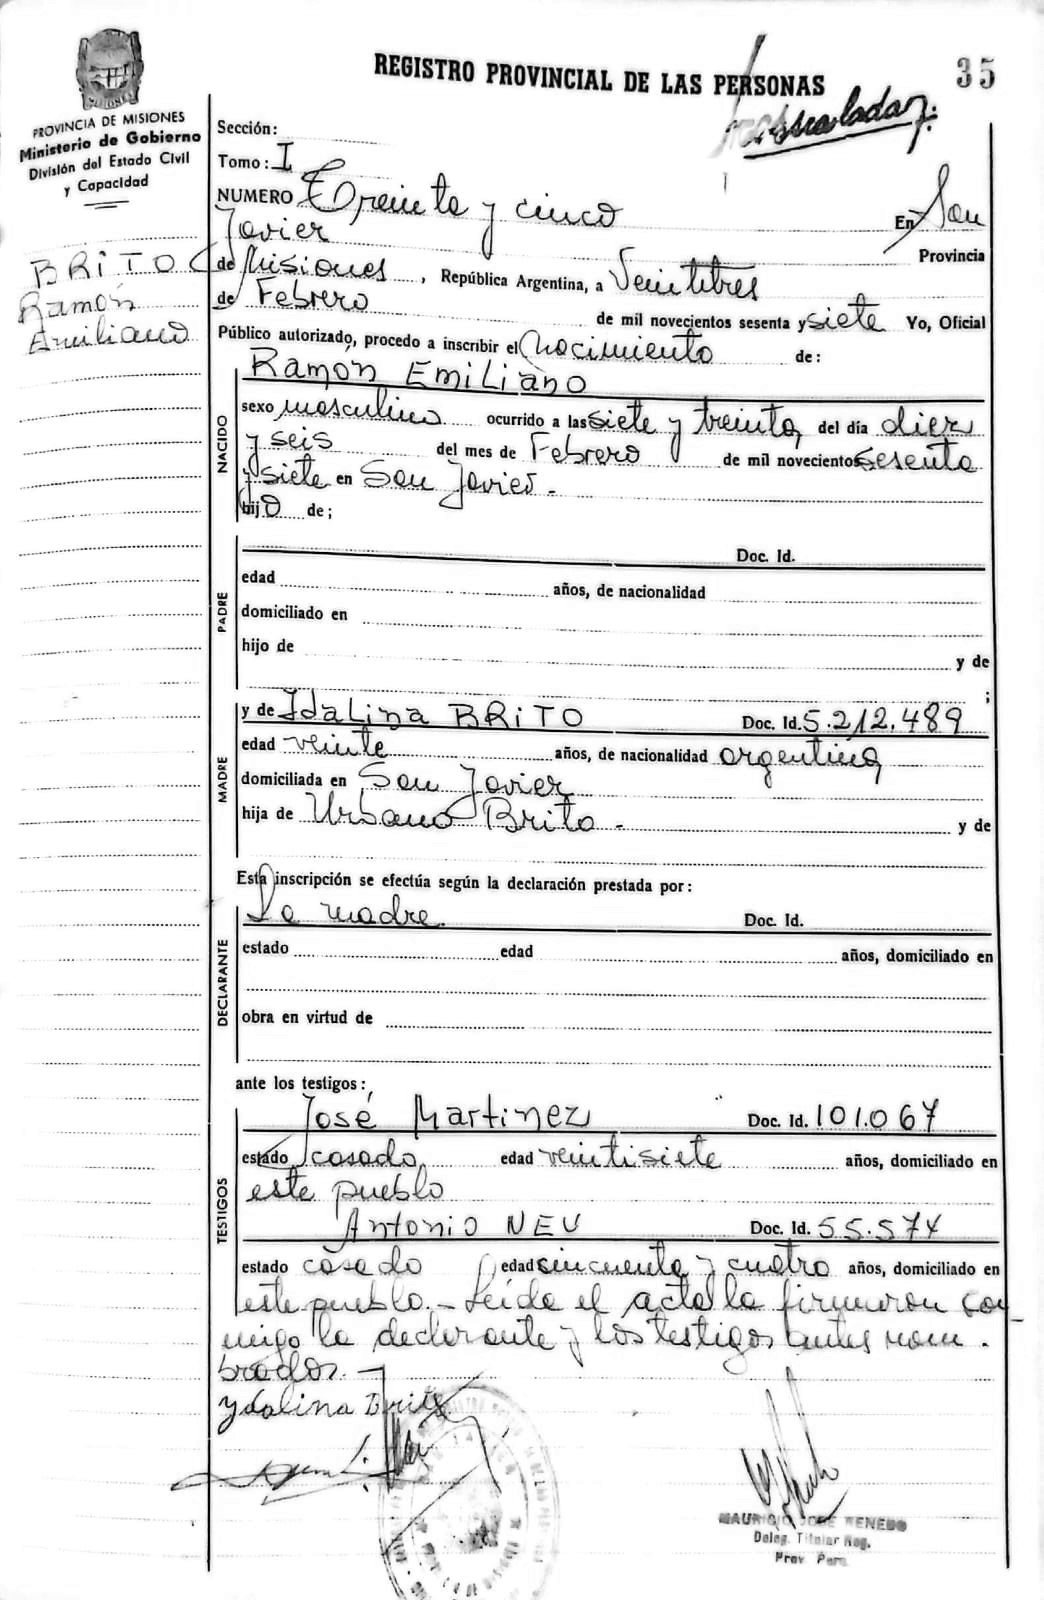 REGISTRO PROVINCIAL DE LAS PERSONAS
35
PROVINCIA DE MISIONES
Ministerio de Gobierno
División del Estado Civil
y Capacidad
BRITO
Ramón
Emiliano
Sección:
Tomo: I
NUMERO Treinta y cinco En San
Javier Provincia
de Misiones, República Argentina, a Veintitres
de Febrero de mil novecientos sesenta y siete Yo, Oficial
Público autorizado, procedo a inscribir el Nacimiento de:
NACIDO
Ramón Emiliano
sexo masculino ocurrido a las siete y treinta del día diez
y seis del mes de Febrero de mil novecientos sesenta
y siete en San Javier.-
hijo de;
PADRE
Doc. Id.
edad años, de nacionalidad
domiciliado en
hijo de y de
;
MADRE
y de Idalina BRITO Doc. Id. 5.212.489
edad veinte años, de nacionalidad argentina
domiciliada en San Javier
hija de Urbano Brito.- y de
Esta inscripción se efectúa según la declaración prestada por:
DECLARANTE
La madre. Doc. Id.
estado edad años, domiciliado en
obra en virtud de
ante los testigos:
TESTIGOS
José Martinez Doc. Id. 101.067
estado casado edad veintisiete años, domiciliado en
este pueblo
Antonio NEU Doc. Id. 55.574
estado casado edad cincuenta y cuatro años, domiciliado en
este pueblo.- Leída el acta la firmaron con
migo la declarante y los testigos antes nom.
brados.-
Ydalina Brito
MAURICIO JOSE RENEDO
Deleg. Titular Reg.
Prov Pers.